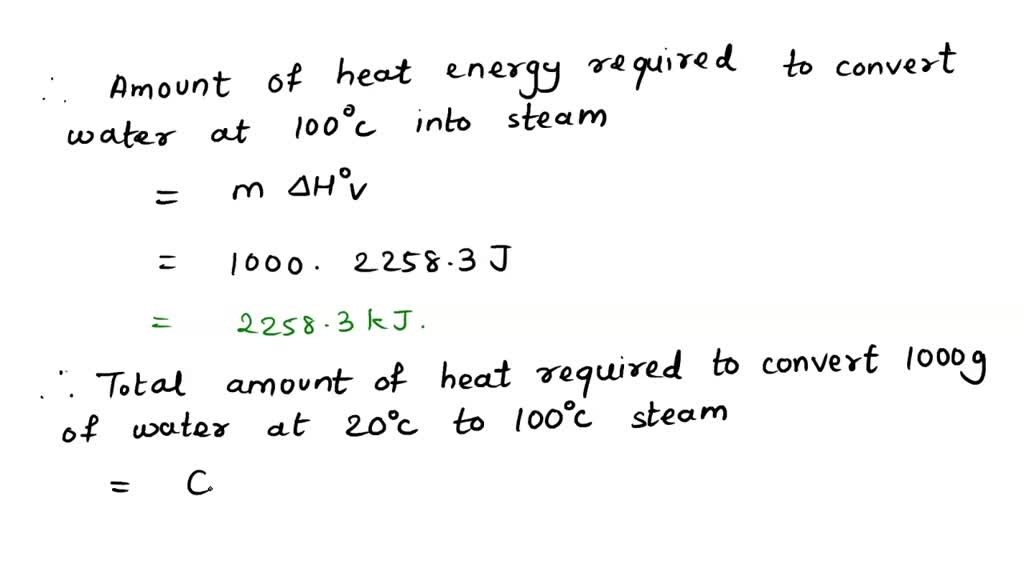 ∴ Amount of heat energy required to convert
water at 100°c into steam
= m ΔH°v
= 1000 . 2258.3 J
= 2258.3 kJ.
∴ Total amount of heat required to convert 1000g
of water at 20°c to 100°c steam
= C